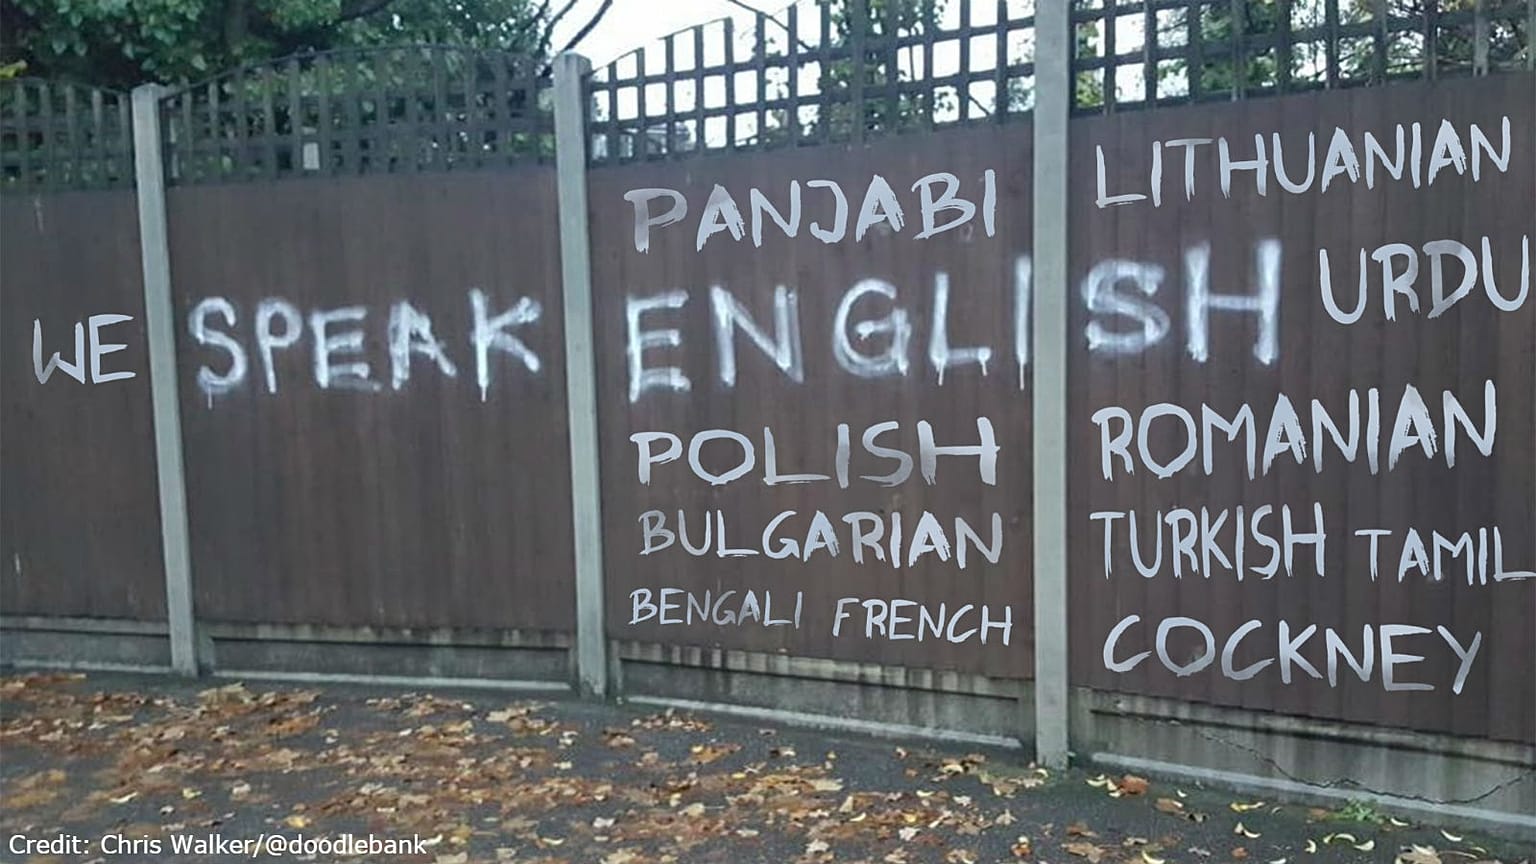 WE SPEAK ENGLISH
PANJABI
LITHUANIAN
URDU
POLISH
ROMANIAN
BULGARIAN
TURKISH TAMIL
BENGALI FRENCH
COCKNEY
Credit: Chris Walker/@doodlebank